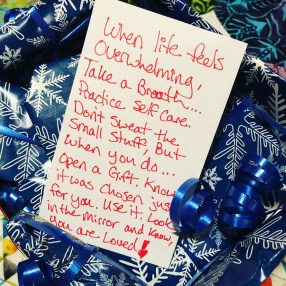 When life feels
overwhelming,
Take a Breath...
Practice self care.
Don't Sweat the
Small Stuff. But
when you do...
Open a Gift. Know
it was chosen just
for you. Use it. Look
in the mirror and know,
you are Loved!